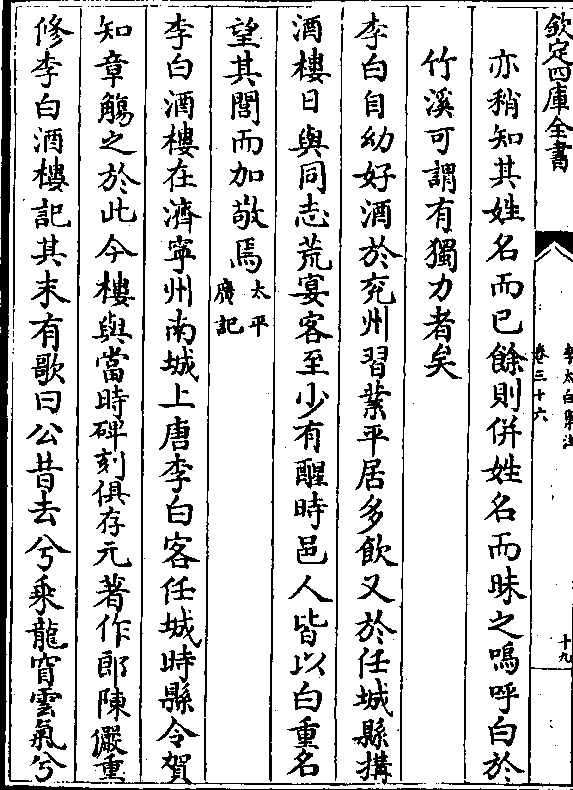 欽定四庫全書
李太白集注
卷三十六
十九
亦稍知其姓名而已餘則併姓名而昧之嗚呼白於
竹溪可謂有獨力者矣
李白自幼好酒於兖州習業平居多飲又於任城縣搆
酒樓日與同志荒宴客至少有醒時邑人皆以白重名
望其閭而加敬焉太平
廣記
李白酒樓在濟寧州南城上唐李白客任城時縣令賀
知章觴之於此今樓與當時碑刻俱存元著作郎陳儼重
修李白酒樓記其末有歌曰公昔去兮乘龍窅雲氣兮